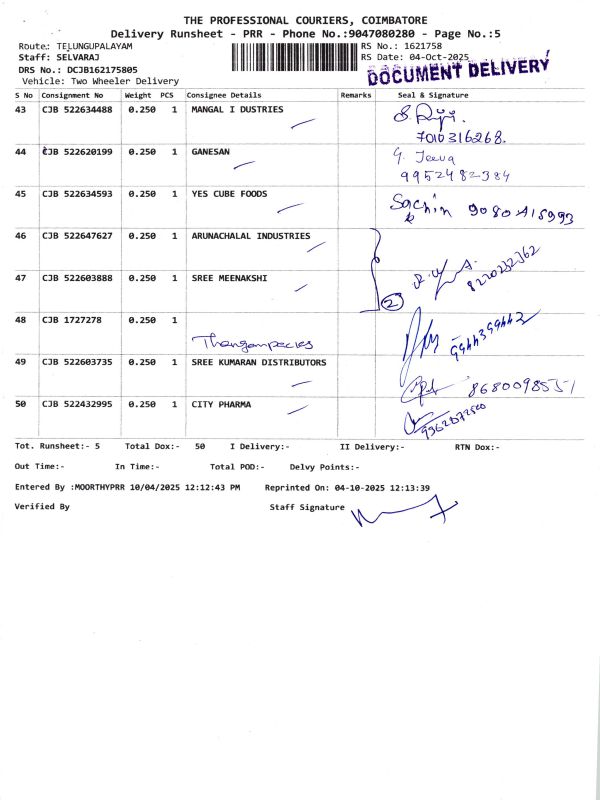 THE PROFESSIONAL COURIERS, COIMBATORE
Delivery Runsheet - PRR - Phone No.:9047080280 - Page No.:5
Route: TELUNGUPALAYAM
RS No.: 1621758
Staff: SELVARAJ
RS Date: 04-Oct-2025
DRS No.: DCJB162175805
DOCUMENT DELIVERY
Vehicle: Two Wheeler Delivery
S No Consignment No Weight PCS Consignee Details Remarks Seal & Signature
43 CJB 522634488 0.250 1 MANGAL I DUSTRIES
7010316268.
44 CJB 522620199 0.250 1 GANESAN G. Jeeva
9952482384
45 CJB 522634593 0.250 1 YES CUBE FOODS
Sachin 9080415993
46 CJB 522647627 0.250 1 ARUNACHALAL INDUSTRIES
8220232362
47 CJB 522603888 0.250 1 SREE MEENAKSHI
2
48 CJB 1727278 0.250 1
9944399442
49 CJB 522603735 0.250 1 SREE KUMARAN DISTRIBUTORS
8680098551
50 CJB 522432995 0.250 1 CITY PHARMA
Tot. Runsheet:- 5 Total Dox:- 50 I Delivery:- II Delivery:- RTN Dox:-
Out Time:- In Time:- Total POD:- Delvy Points:-
Entered By :MOORTHYPRR 10/04/2025 12:12:43 PM Reprinted On: 04-10-2025 12:13:39
Verified By Staff Signature